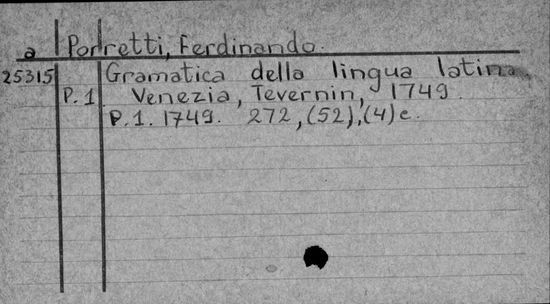 a Porretti, Ferdinando.
25315 Gramatica della lingua latina.
P. 1 Venezia, Tevernin, 1749.
P. 1. 1749. 272, (52), (4) c.